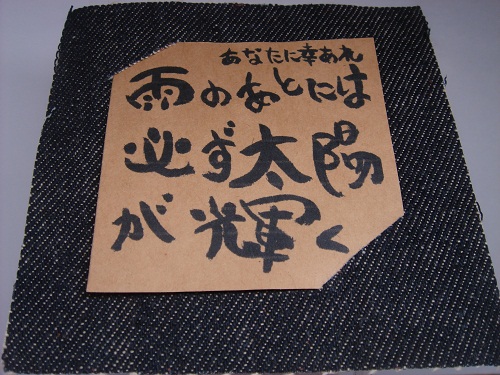 あなたに幸あれ
雨のあとには
必ず太陽
が輝く